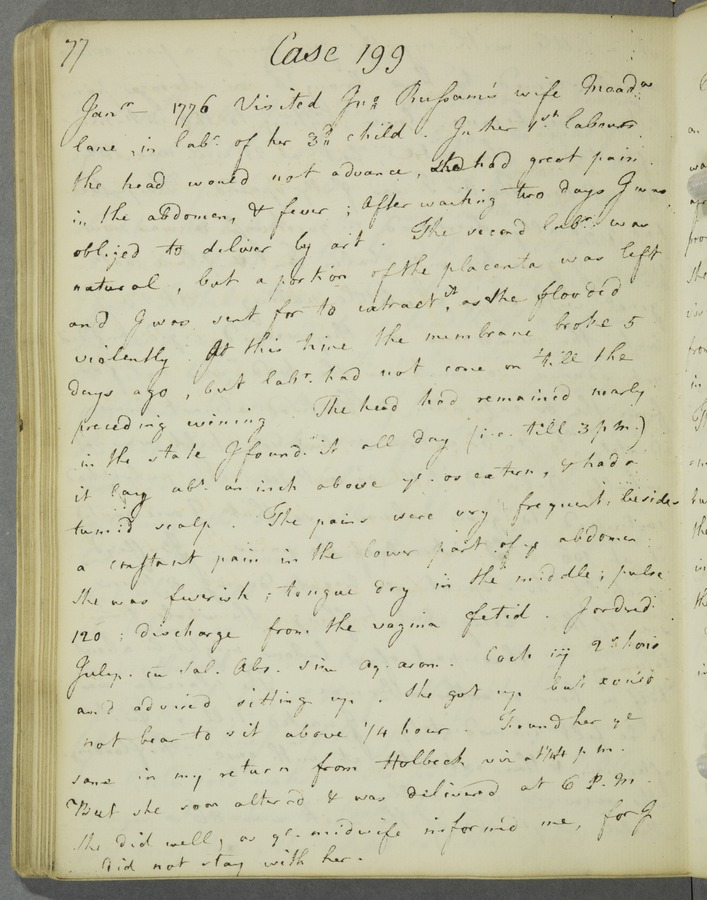 77
Case 199
Janry 1776 Visited Jno Rufsam's wife Meadw
lane, in labr. of her 3d child. In her 1st labour
the head would not advance, she had great pain
in the abdomen, & fever; After waiting two days I was
obliged to deliver by art. The second labr. was
natural, but a portion of the placenta was left
and I was sent for to extract it, as she flooded
violently. At this time the membrane broke 5
days ago, but labr. had not come on 'till the
preceding evening. The head had remained nearly
in the state I found it all day (i.e. till 3 p.m.)
it lay abt. an inch above ye. os extern, & had a
tumid scalp. The pains were very frequent, besides
a constant pain in the lower part of ye abdomen.
She was feverish; tongue dry in the middle; pulse
120; discharge from the vagina fetid. I ordred
Julep. cu Sal. Abs. sine aq. arom. Coch iij 2s hors
and advised sitting up. She got up but could
not bear to sit above 1/4 hour. Found her ye
same in my return from Holbeck viz at 1/4 4 p.m.
But she soon altered & was delivered at 6 P.M.
She did well, as ye. midwife informed me, for I
did not stay with her.